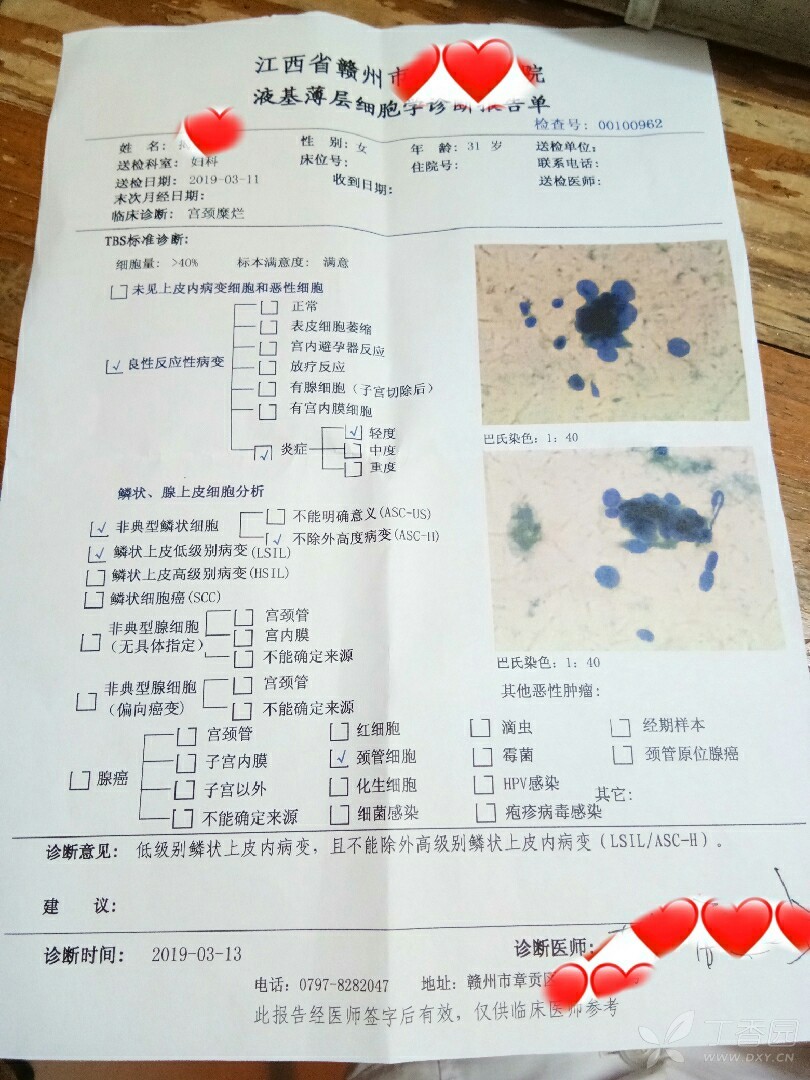 江西省赣州市 院
液基薄层细胞学诊断报告单
检查号: 00100962
姓 名: 性 别: 女 年 龄: 31 岁 送检单位:
送检科室: 妇科 床位号: 住院号: 联系电话:
送检日期: 2019-03-11 收到日期: 送检医师:
末次月经日期:
临床诊断: 宫颈糜烂
TBS标准诊断:
细胞量: >40% 标本满意度: 满意
未见上皮内病变细胞和恶性细胞
正常
表皮细胞萎缩
宫内避孕器反应
√ 良性反应性病变
放疗反应
有腺细胞(子宫切除后)
有宫内膜细胞
√ 炎症
√ 轻度
中度
重度
巴氏染色: 1: 40
鳞状、腺上皮细胞分析
√ 非典型鳞状细胞
不能明确意义(ASC-US)
√ 不除外高度病变(ASC-H)
√ 鳞状上皮低级别病变(LSIL)
鳞状上皮高级别病变(HSIL)
鳞状细胞癌(SCC)
非典型腺细胞
(无具体指定)
宫颈管
宫内膜
不能确定来源
巴氏染色: 1: 40
非典型腺细胞
(偏向癌变)
宫颈管
不能确定来源
其他恶性肿瘤:
腺癌
宫颈管
子宫内膜
子宫以外
不能确定来源
红细胞 滴虫 经期样本
√ 颈管细胞 霉菌 颈管原位腺癌
化生细胞 HPV感染 其它:
细菌感染 疱疹病毒感染
诊断意见: 低级别鳞状上皮内病变, 且不能除外高级别鳞状上皮内病变(LSIL/ASC-H)。
建 议:
诊断时间: 2019-03-13 诊断医师:
电话: 0797-8282047 地址: 赣州市章贡区
此报告经医师签字后有效, 仅供临床医师参考
丁香园
WWW.DXY.CN